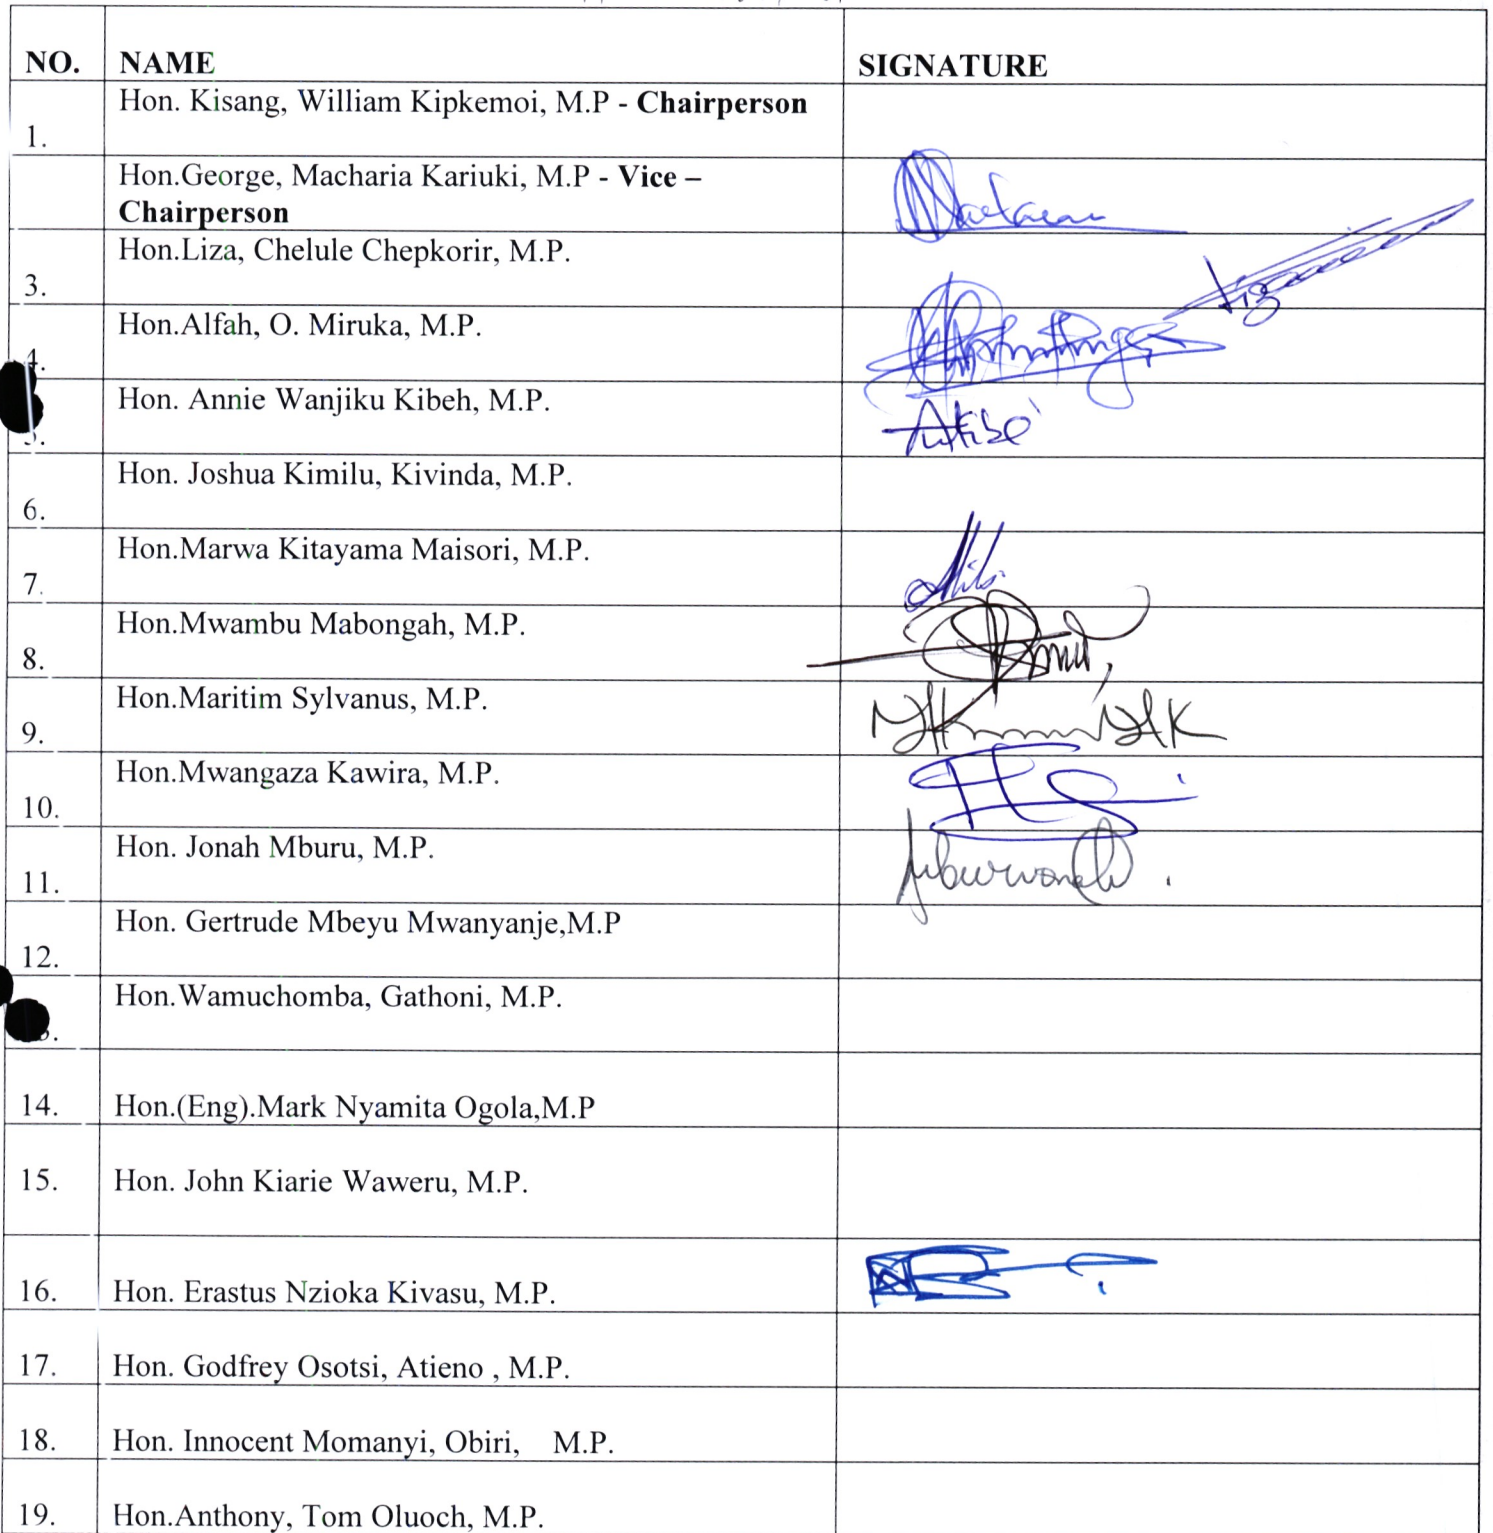 NO. NAME SIGNATURE
Hon. Kisang, William Kipkemoi, M.P - Chairperson
1.
Hon.George, Macharia Kariuki, M.P - Vice –
Chairperson
Hon.Liza, Chelule Chepkorir, M.P.
3.
Hon.Alfah, O. Miruka, M.P.
4.
Hon. Annie Wanjiku Kibeh, M.P.
Hon. Joshua Kimilu, Kivinda, M.P.
6.
Hon.Marwa Kitayama Maisori, M.P.
7.
Hon.Mwambu Mabongah, M.P.
8.
Hon.Maritim Sylvanus, M.P.
9.
Hon.Mwangaza Kawira, M.P.
10.
Hon. Jonah Mburu, M.P.
11.
Hon. Gertrude Mbeyu Mwanyanje,M.P
12.
Hon.Wamuchomba, Gathoni, M.P.
14. Hon.(Eng).Mark Nyamita Ogola,M.P
15. Hon. John Kiarie Waweru, M.P.
16. Hon. Erastus Nzioka Kivasu, M.P.
17. Hon. Godfrey Osotsi, Atieno , M.P.
18. Hon. Innocent Momanyi, Obiri, M.P.
19. Hon.Anthony, Tom Oluoch, M.P.